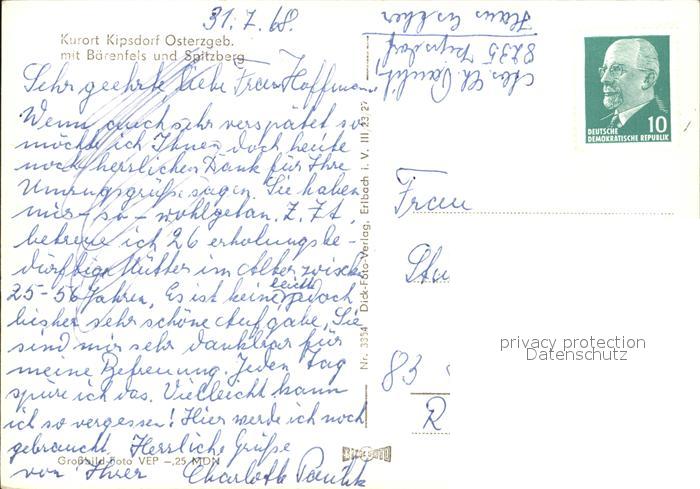 31.7.68.
Kurort Kipsdorf Osterzgeb.
mit Bärenfels und Spitzberg
Sehr geehrte, liebe Frau Hoffmann,
Wenn auch sehr verspätet so
möchte ich Ihnen doch heute
noch herrlichen Dank für Ihre
Umzugsgrüße sagen. Sie haben
mir - so - wohlgetan. Z. Zt.
betreue ich 26 erholungsbe-
dürftige Mütter im Alter zwischen
25-56 Jahren. Es ist keine leichte jedoch
bisher sehr schöne Aufgabe. Sie
sind mir sehr dankbar für
meine Betreuung. Jeden Tag
spüre ich das. Vielleicht kann
ich so vergessen! Hier werde ich noch
gebraucht. Herzliche Grüße
von Ihrer Charlotte
Großbild-Foto VEP -,25 MDN
Nr. 3354 Dick-Foto-Verlag, Erlbach i. V. III 23 27
8235 Kipsdorf
Haus
DEUTSCHE
DEMOKRATISCHE REPUBLIK
10
Frau
83
R
privacy protection
Datenschutz